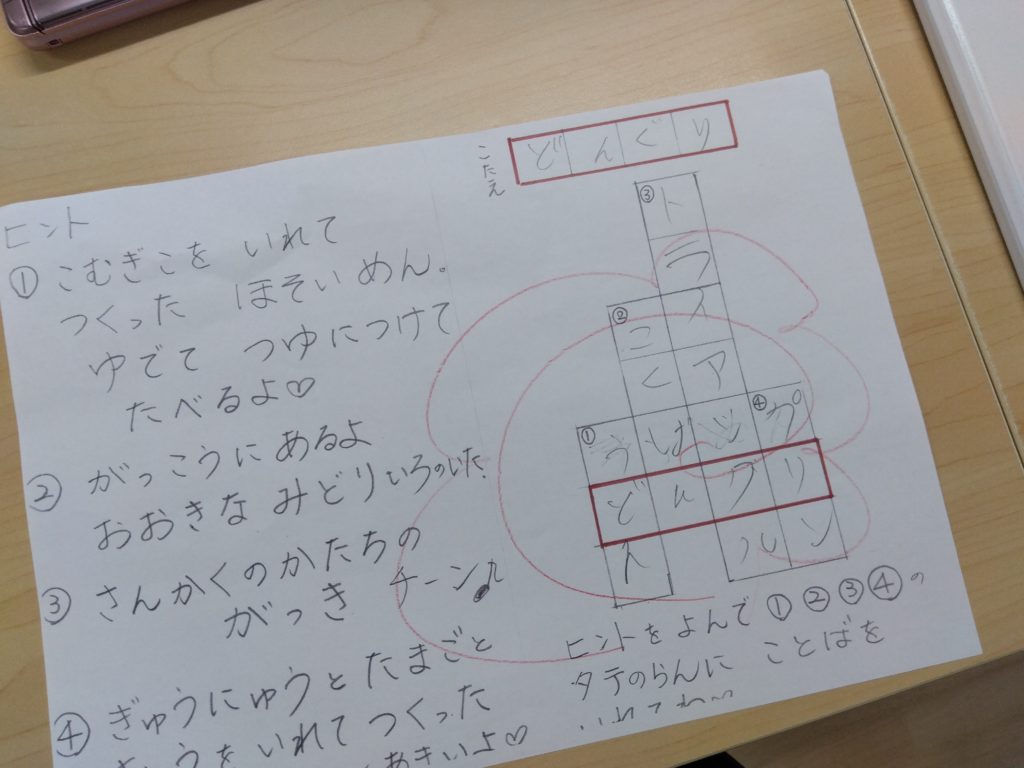 こたえ
どんぐり
ヒント
① こむぎこを いれて
つくった ほそい めん。
ゆでて つゆにつけて
たべるよ♡
② がっこうにあるよ
おおきな みどりいろのいた
③ さんかくのかたちの
がっき チーン♪
④ ぎゅうにゅうと たまごと
をいれて つくった
③ ト
ラ
② コ イ
ク ア
① う ば ン ④ プ
ど ん グ リ
ん ル ン
ヒントをよんで ① ② ③ ④ の
タテのらんに ことばを